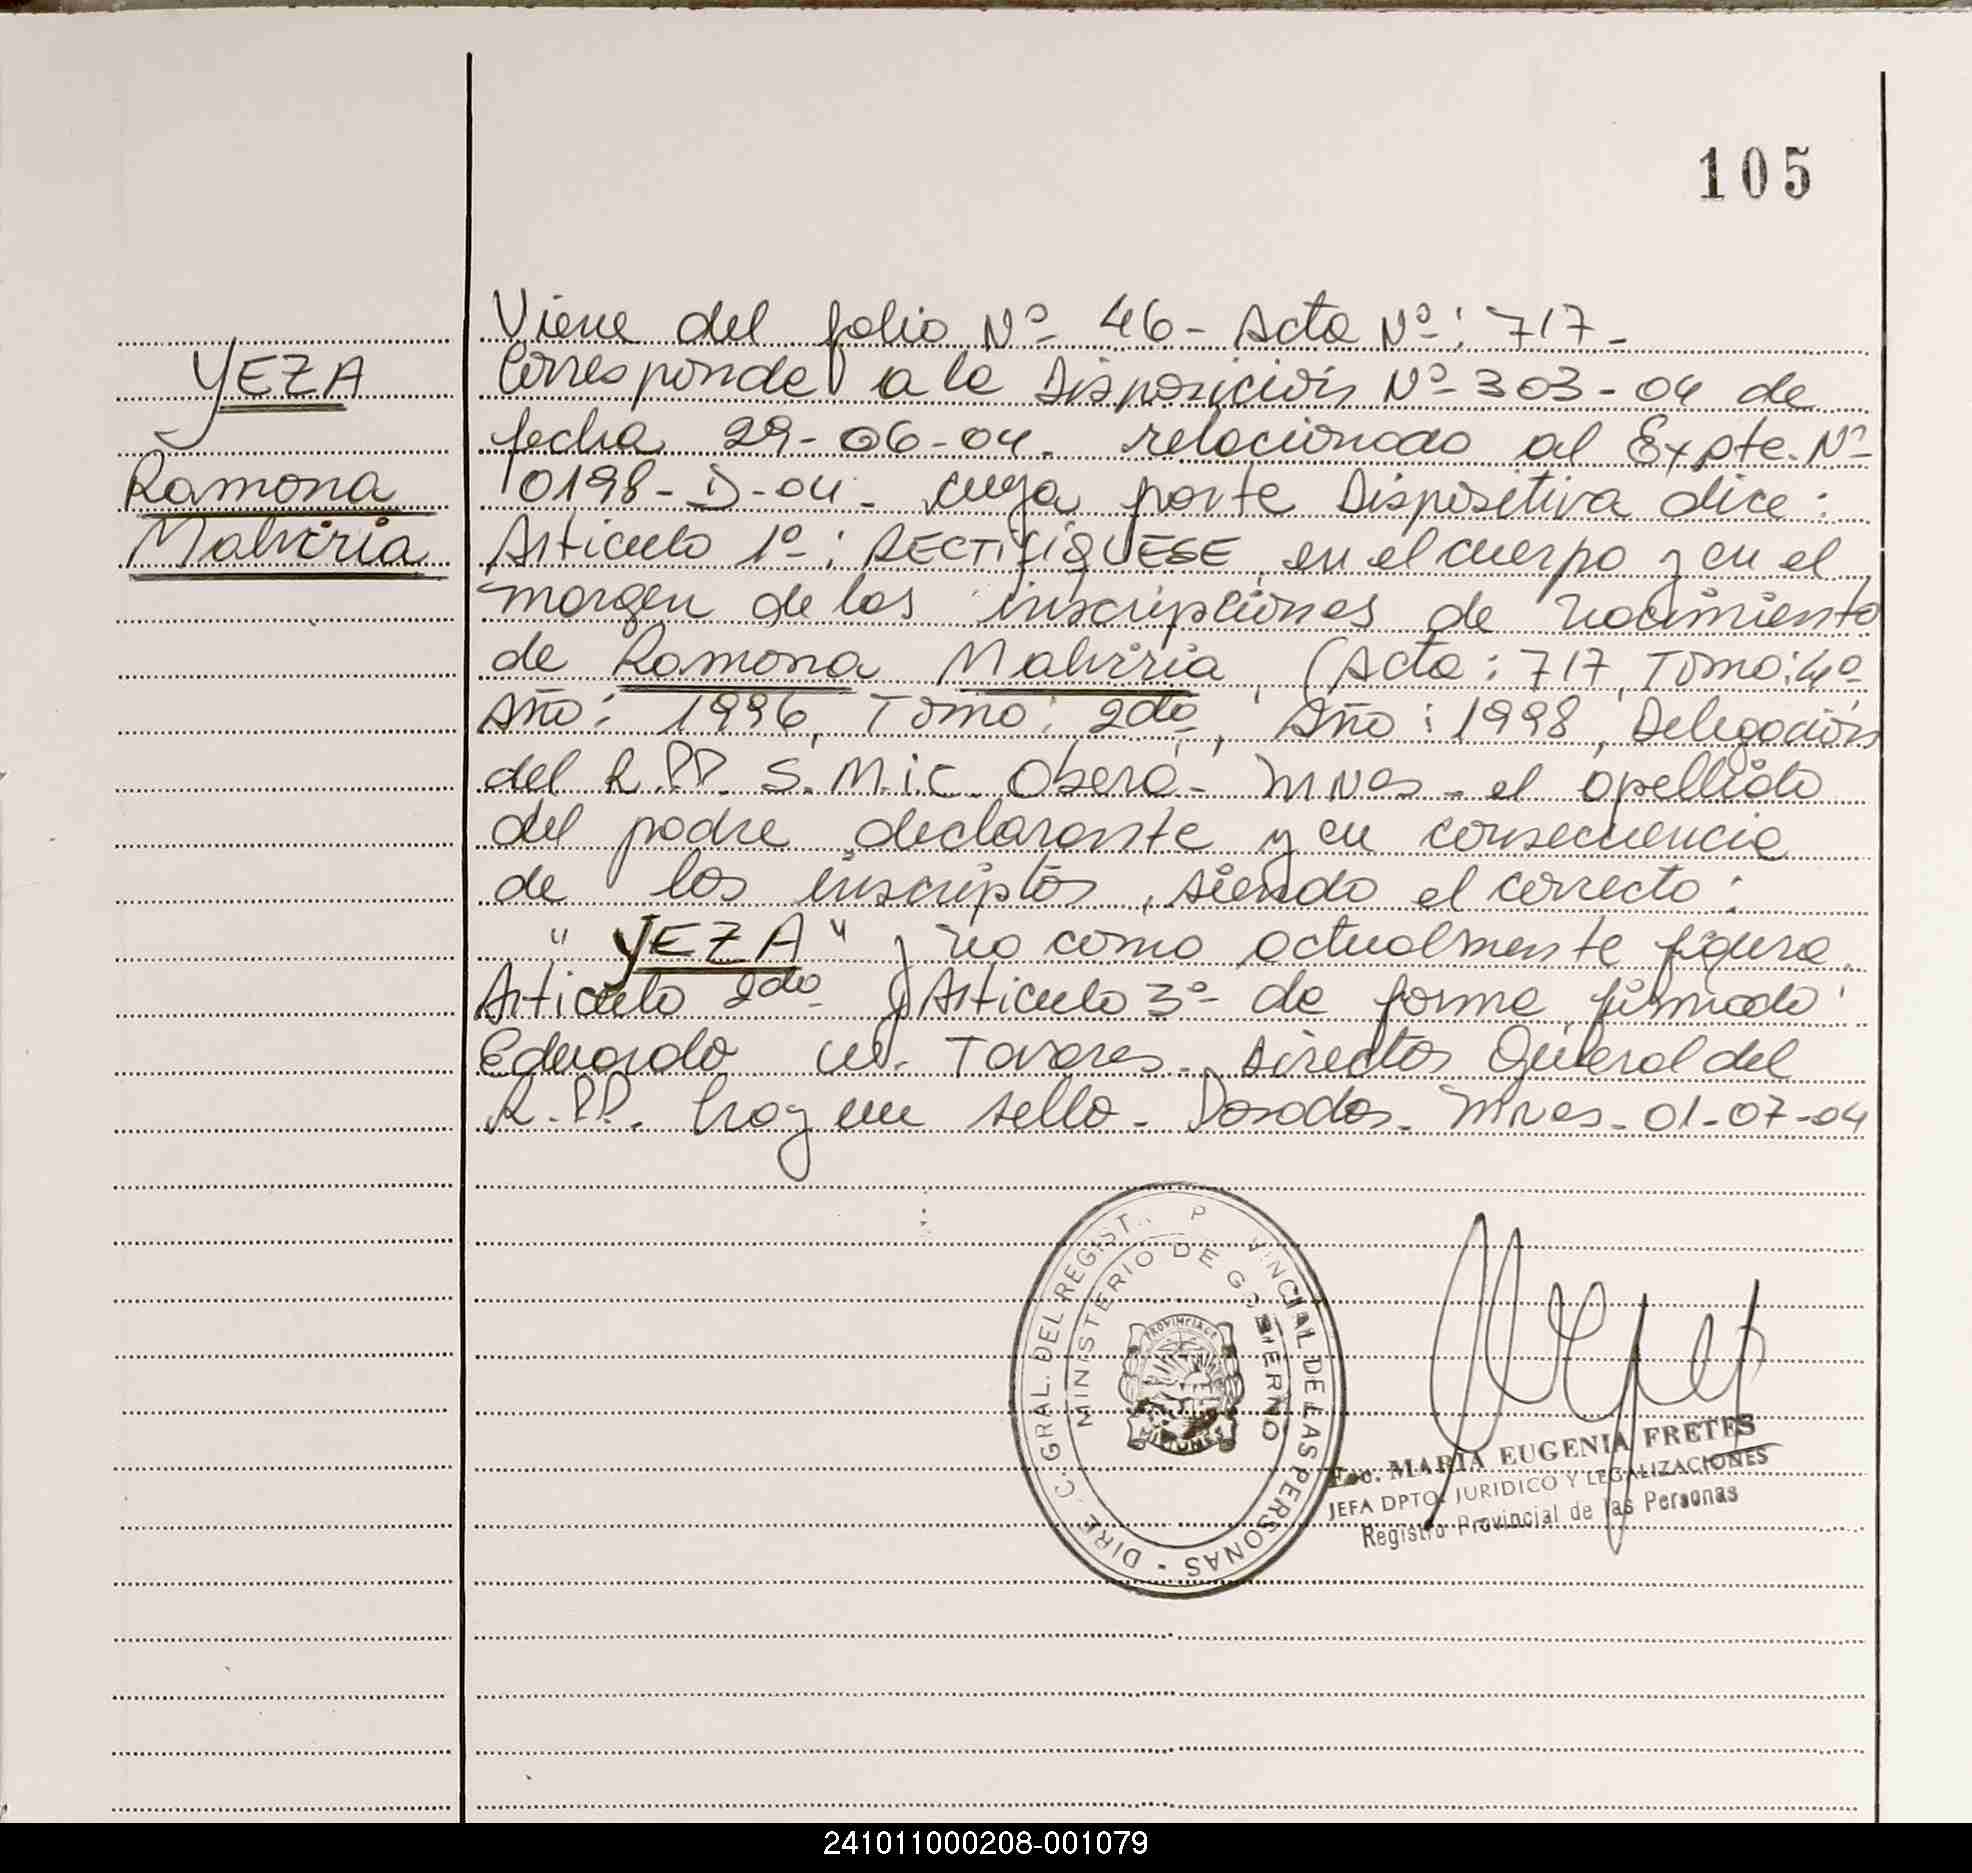 105
Viene del folio Nº 46- Acta Nº: 717-
YEZA
Corresponde a la Disposición Nº 303-04 de
fecha 29-06-04. relacionado al Expte. Nº
Ramona
0198-D-04- cuya parte Dispositiva dice:
Malviria
Articulo 1º: RECTIFIQUESE, en el cuerpo y en el
margen de las inscripciones de nacimiento
de Ramona Malviria, (Acta: 717, Tomo: 4º
Año: 1996, Tomo: 2do, Año: 1998, Delegación
del R.P.P. S.M.i.C. Oberá- Mnes- el apellido
del padre declarante y en consecuencia
de los inscriptos, siendo el correcto:
"YEZA" y no como actualmente figura.
Articulo 2do y Articulo 3º de forma, firmado:
Eduardo M. Tavares- Director General del
R.P.P. hay un sello- Posadas- Mnes- 01-07-04
DIREC. GRAL. DEL REGIST. P VINCIAL DE LAS PERSONAS -
MINISTERIO DE GOBIERNO
PROVINCIA DE
MISIONES
Esc. MARIA EUGENIA FRETES
JEFA DPTO. JURIDICO Y LEGALIZACIONES
Registro Provincial de las Personas
241011000208-001079